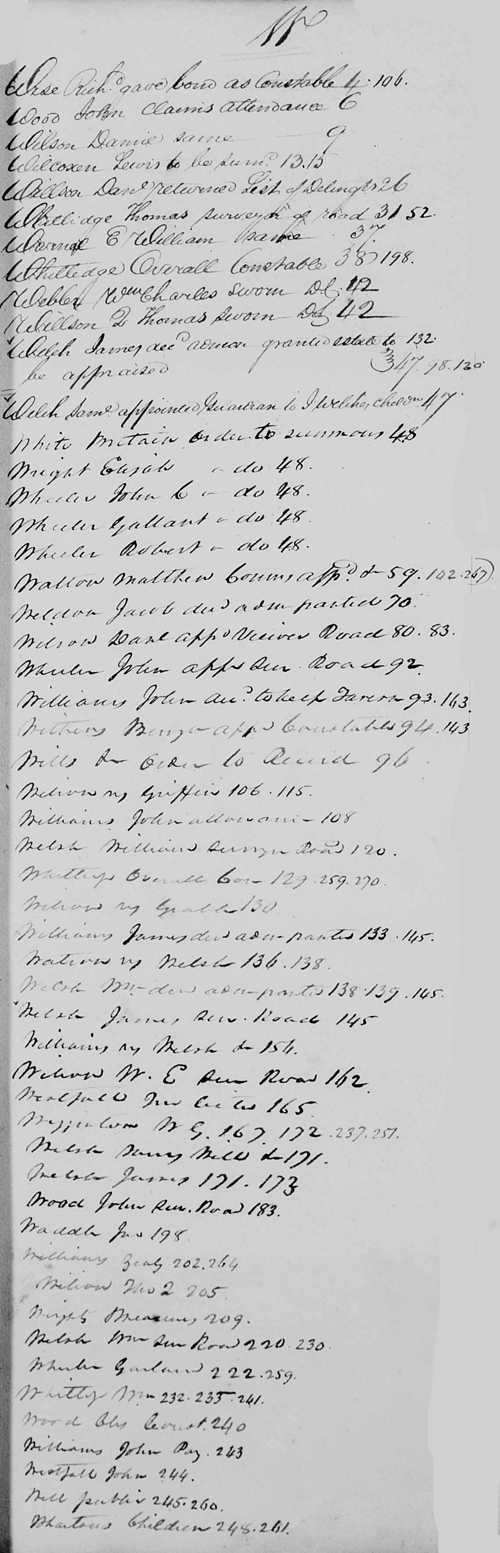 W
Wise Rich.d gave bond as Constable 4.106.
Wood John claims attendance 6
Wilson Daniel same 9
Wilcoxen Lewis to be sum.d 13.15
Willson Dan.l returned List of Delinq.ts 26
Whitlidge Thomas survey.r of road 31 52.
William same 37
Whitledge Overall Constable 38 198.
Webber Wm Charles sworn D.S. 42
Willson Q Thomas sworn D.S. 42
Welch James dec.d admon granted estate to 132.
be appraised 347.98.120
Welch Sam.l appointed Guardian to J Welches children 47.
White Britain order to summons 48
Wright Elijah do 48.
Wheeler John C do 48.
Wheeler Gallant do 48.
Wheeler Robert do 48.
Matthew Comms app.d & 59.102.267
Weldon Jacob decd adm granted 70.
Wilson Danl appd Viewer Road 80.83.
Wheeler John appd Sur. Road 92
Williams John Lic.d to keep Tavern 93.143.
Withers app.d Constable 94.143
Wills & Order to Record 96
Wilson vs Griffin 106.115.
Williams John allowance 108
Welsh William Survyr Road 120.
Whitledge Overall Con 129.259.270.
Wilson vs 130
Williams James decd adm granted 133.145.
Watson vs Welsh 136.138.
Welsh Wm decd adm granted 138.139.145.
Welsh James Sur. Road 145
Williams vs Welsh & 154.
Wilson W. E Sur Road 162.
Westfall 165.
W G. 167.172.237.251.
Welsh James Will & 171.
Welsh James 171.173
Wood John Sur. Road 183.
Waddle Jno 198
Williams 202.264
Wilson Tho Q 205.
Wright 209.
Welsh Wm Sur Road 220.230.
Wheeler Garland 222.259.
Whitley Wm 232.235.241.
Wood Const. 240
Williams John Pay. 243
Westfall John 244.
Will public 245.260.
Whartons Children 248.261.